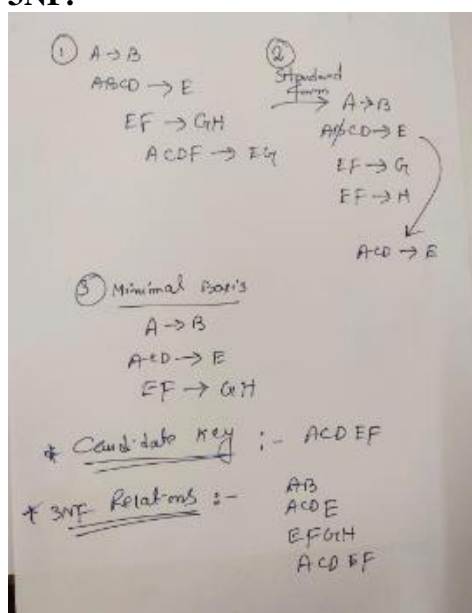 3NF:
① A → B
ABCD → E
EF → GH
ACDF → EG
②
Standard
form
A → B
ABCD → E
EF → G
EF → H
ACD → E
③ Minimal Basis
A → B
ACD → E
EF → GH
* Candidate Key :- ACDEF
* 3NF Relations :-
AB
ACDE
EFGH
ACDEF